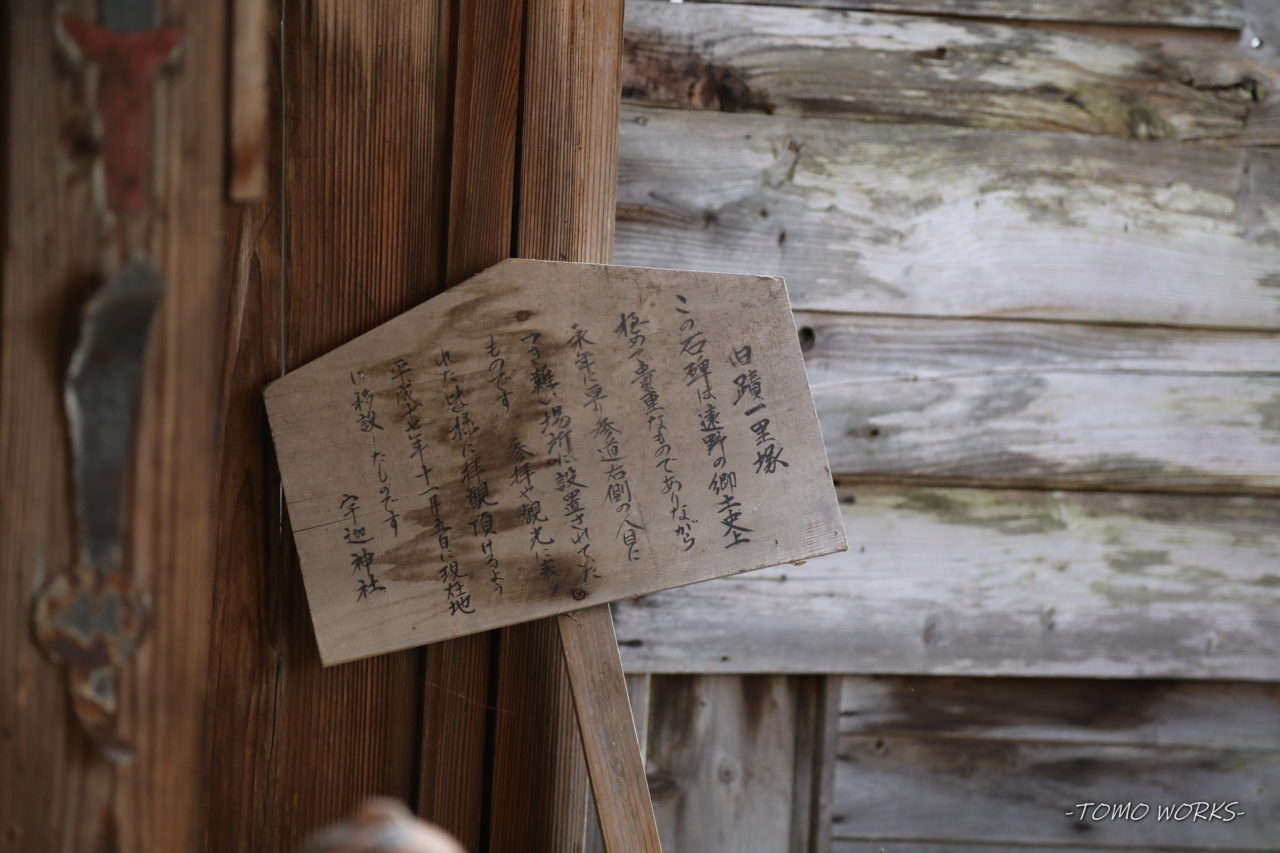 旧蹟一里塚
この石碑は遠野の郷土史上
極めて貴重なものでありながら
永年に亘り参道右側の人目に
つき難い場所に設置されていた
ものです 参拝や観光に来ら
れた皆様に拝観頂けるよう
平成十七年十一月五日に現在地
に移設したものです
宇迦神社
-TOMO WORKS-